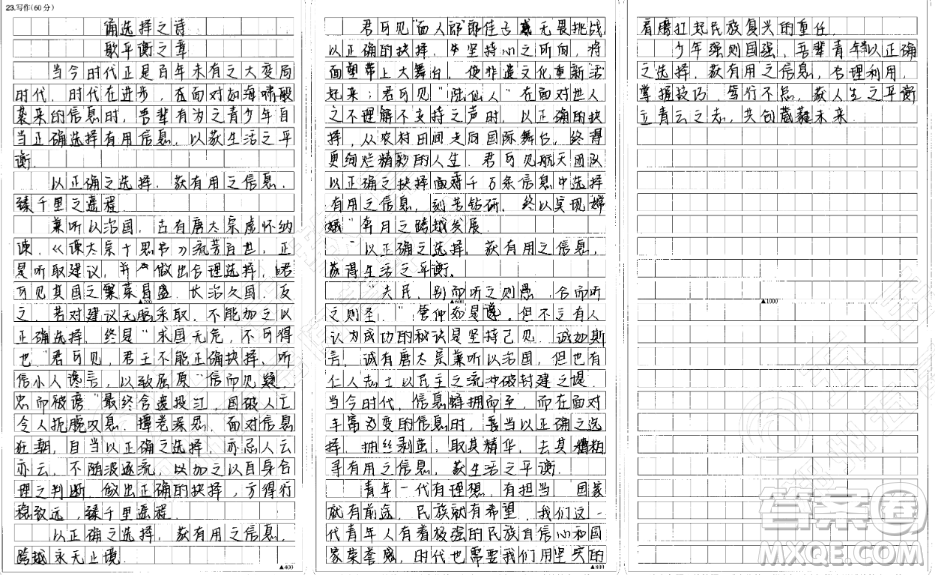 23.写作(60分)
诵选择之诗
歌平衡之章
当今时代正是百年未有之大变局
时代，时代在进步，在面对如海啸般
袭来的信息时，吾辈有为之青少年自
当正确选择有用信息，以获生活之平
衡
以正确之选择，获有用之信息，
臻千里之遥程
兼听以治国，古有唐太宗虚怀纳
谏，《谏太宗十思书》流芳百世，正
是听取建议，并做出合理选择，君
可见其国之繁荣昌盛，长治久国，反
之，若对建议无脑采取，不能加之以
正确选择，终是“求国无危，不可得
也”君可见，君王不能正确抉择，听
信小人谗言，以致屈原“信而见疑，
忠而被谤”最终含恨投江，国破人亡
令人扼腕叹息，掩卷深思，面对信息
在潮，自当以正确之选择，亦忌人云
亦云，不随波逐流，以加之以自身合
理之判断，做出正确的抉择，方得行
稳致远，臻千里遥程
以正确之选择，获有用之信息，
跨越永无止境
▲400
君可见“面人郎”郎佳子彧无畏挑战
以正确的抉择，坚持心之所向，将
面塑带上大舞台，使非遗文化重新活
起来；君可见“陆仙人”在面对世人
之不理解不支持之声时，以正确的抉
择，从农村田间走向国际舞台，终得
更绚烂精彩的人生，君可见航天团队
以正确之抉择面对千万条信息中选择
有用之信息，刻苦钻研，终以实现嫦
娥”奔月之跨越发展
以正确之选择，获有用之信息，
获得生活之平衡
“夫民，别而听之则愚，合而听
之则圣”管仲如是道，但不乏有人
认为成功的秘诀是坚持己见，诚如斯
言，诚有唐太宗兼听以治国，但也有
仁人志士以民主之流冲破封建之堤
当今时代，信息蜂拥而至，而在面对
丰富多变的信息时，善当以正确之选
择，抽丝剥茧，取其精华，去其糟粕
寻有用之信息，获生活之平衡
青年一代有理想，有担当，国家
就有前途，民族就有希望，我们这一
代青年人有着极强的民族自信心和国
家荣誉感，时代也需要我们用坚实的
▲600
▲800
肩膀扛起民族复兴的重任
少年强则国强，吾辈青年以正确
之选择，获有用之信息，合理利用，
掌握技巧，笃行不怠，获人生之平衡
立青云之志，共创葳蕤未来
▲1000
答案圈
MXQE.COM